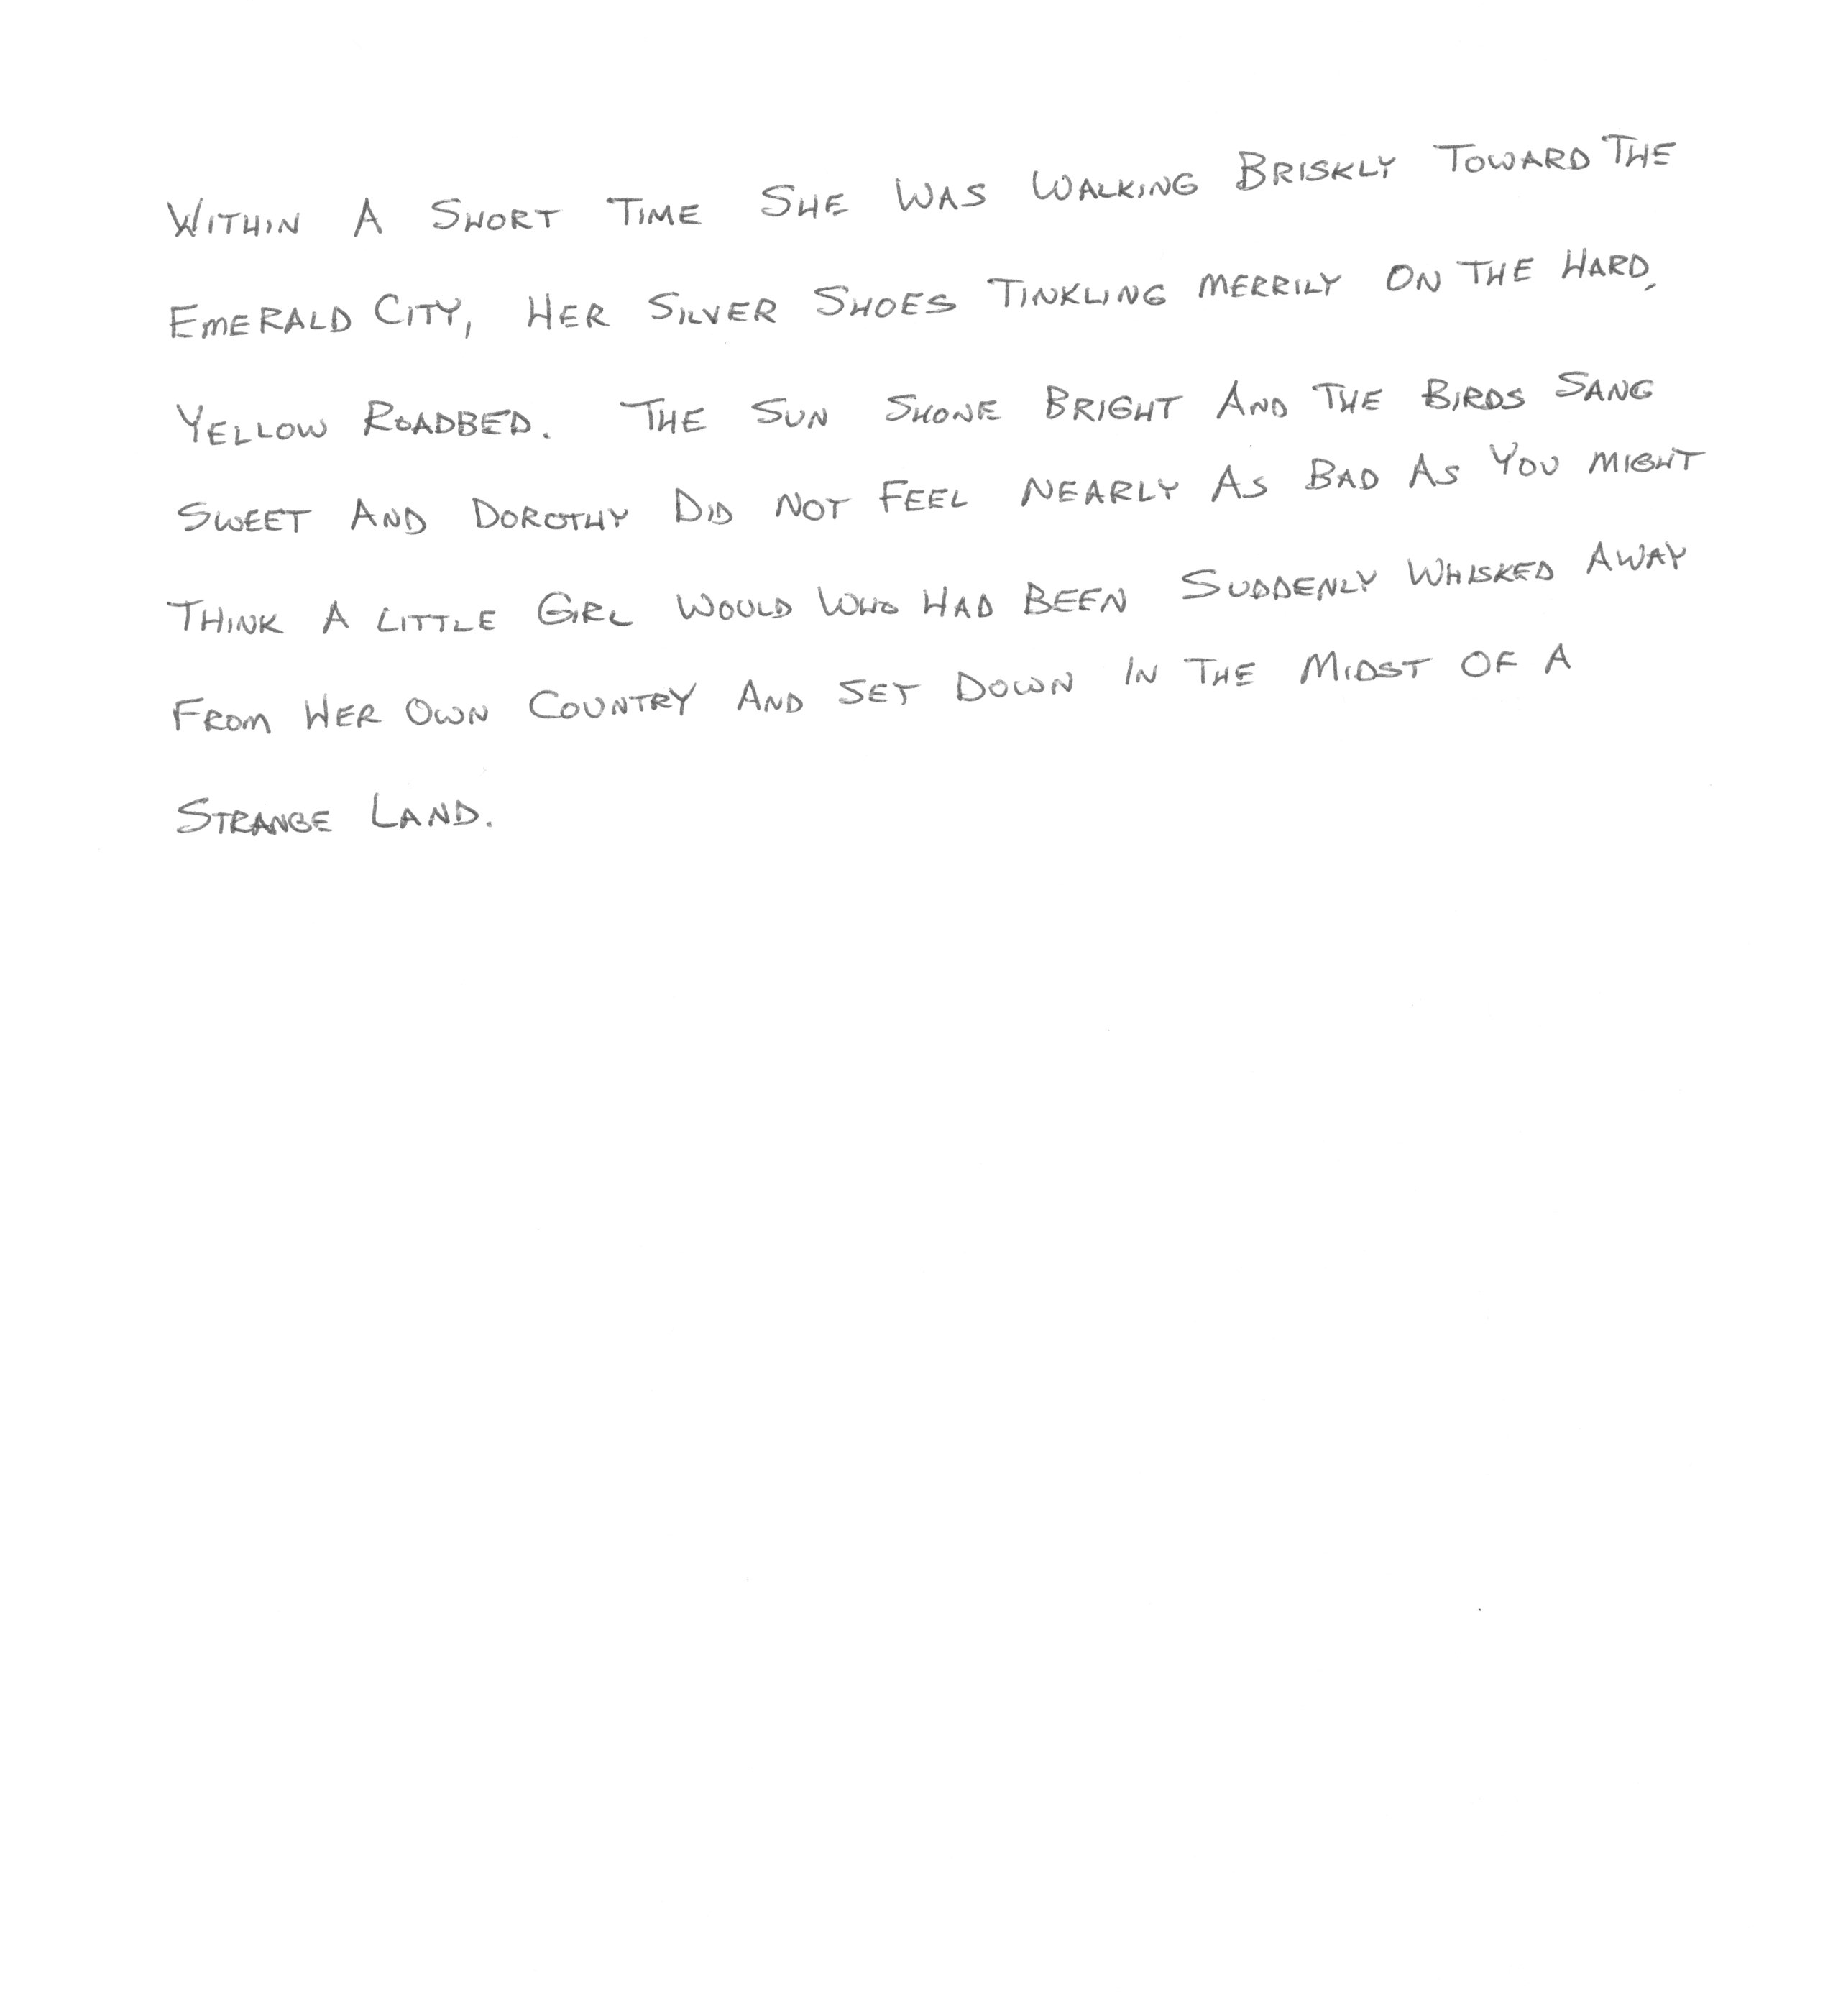 WITHIN A SHORT TIME SHE WAS WALKING BRISKLY TOWARD THE
EMERALD CITY, HER SILVER SHOES TINKLING MERRILY ON THE HARD,
YELLOW ROADBED. THE SUN SHONE BRIGHT AND THE BIRDS SANG
SWEET AND DOROTHY DID NOT FEEL NEARLY AS BAD AS YOU MIGHT
THINK A LITTLE GIRL WOULD WHO HAD BEEN SUDDENLY WHISKED AWAY
FROM HER OWN COUNTRY AND SET DOWN IN THE MIDST OF A
STRANGE LAND.